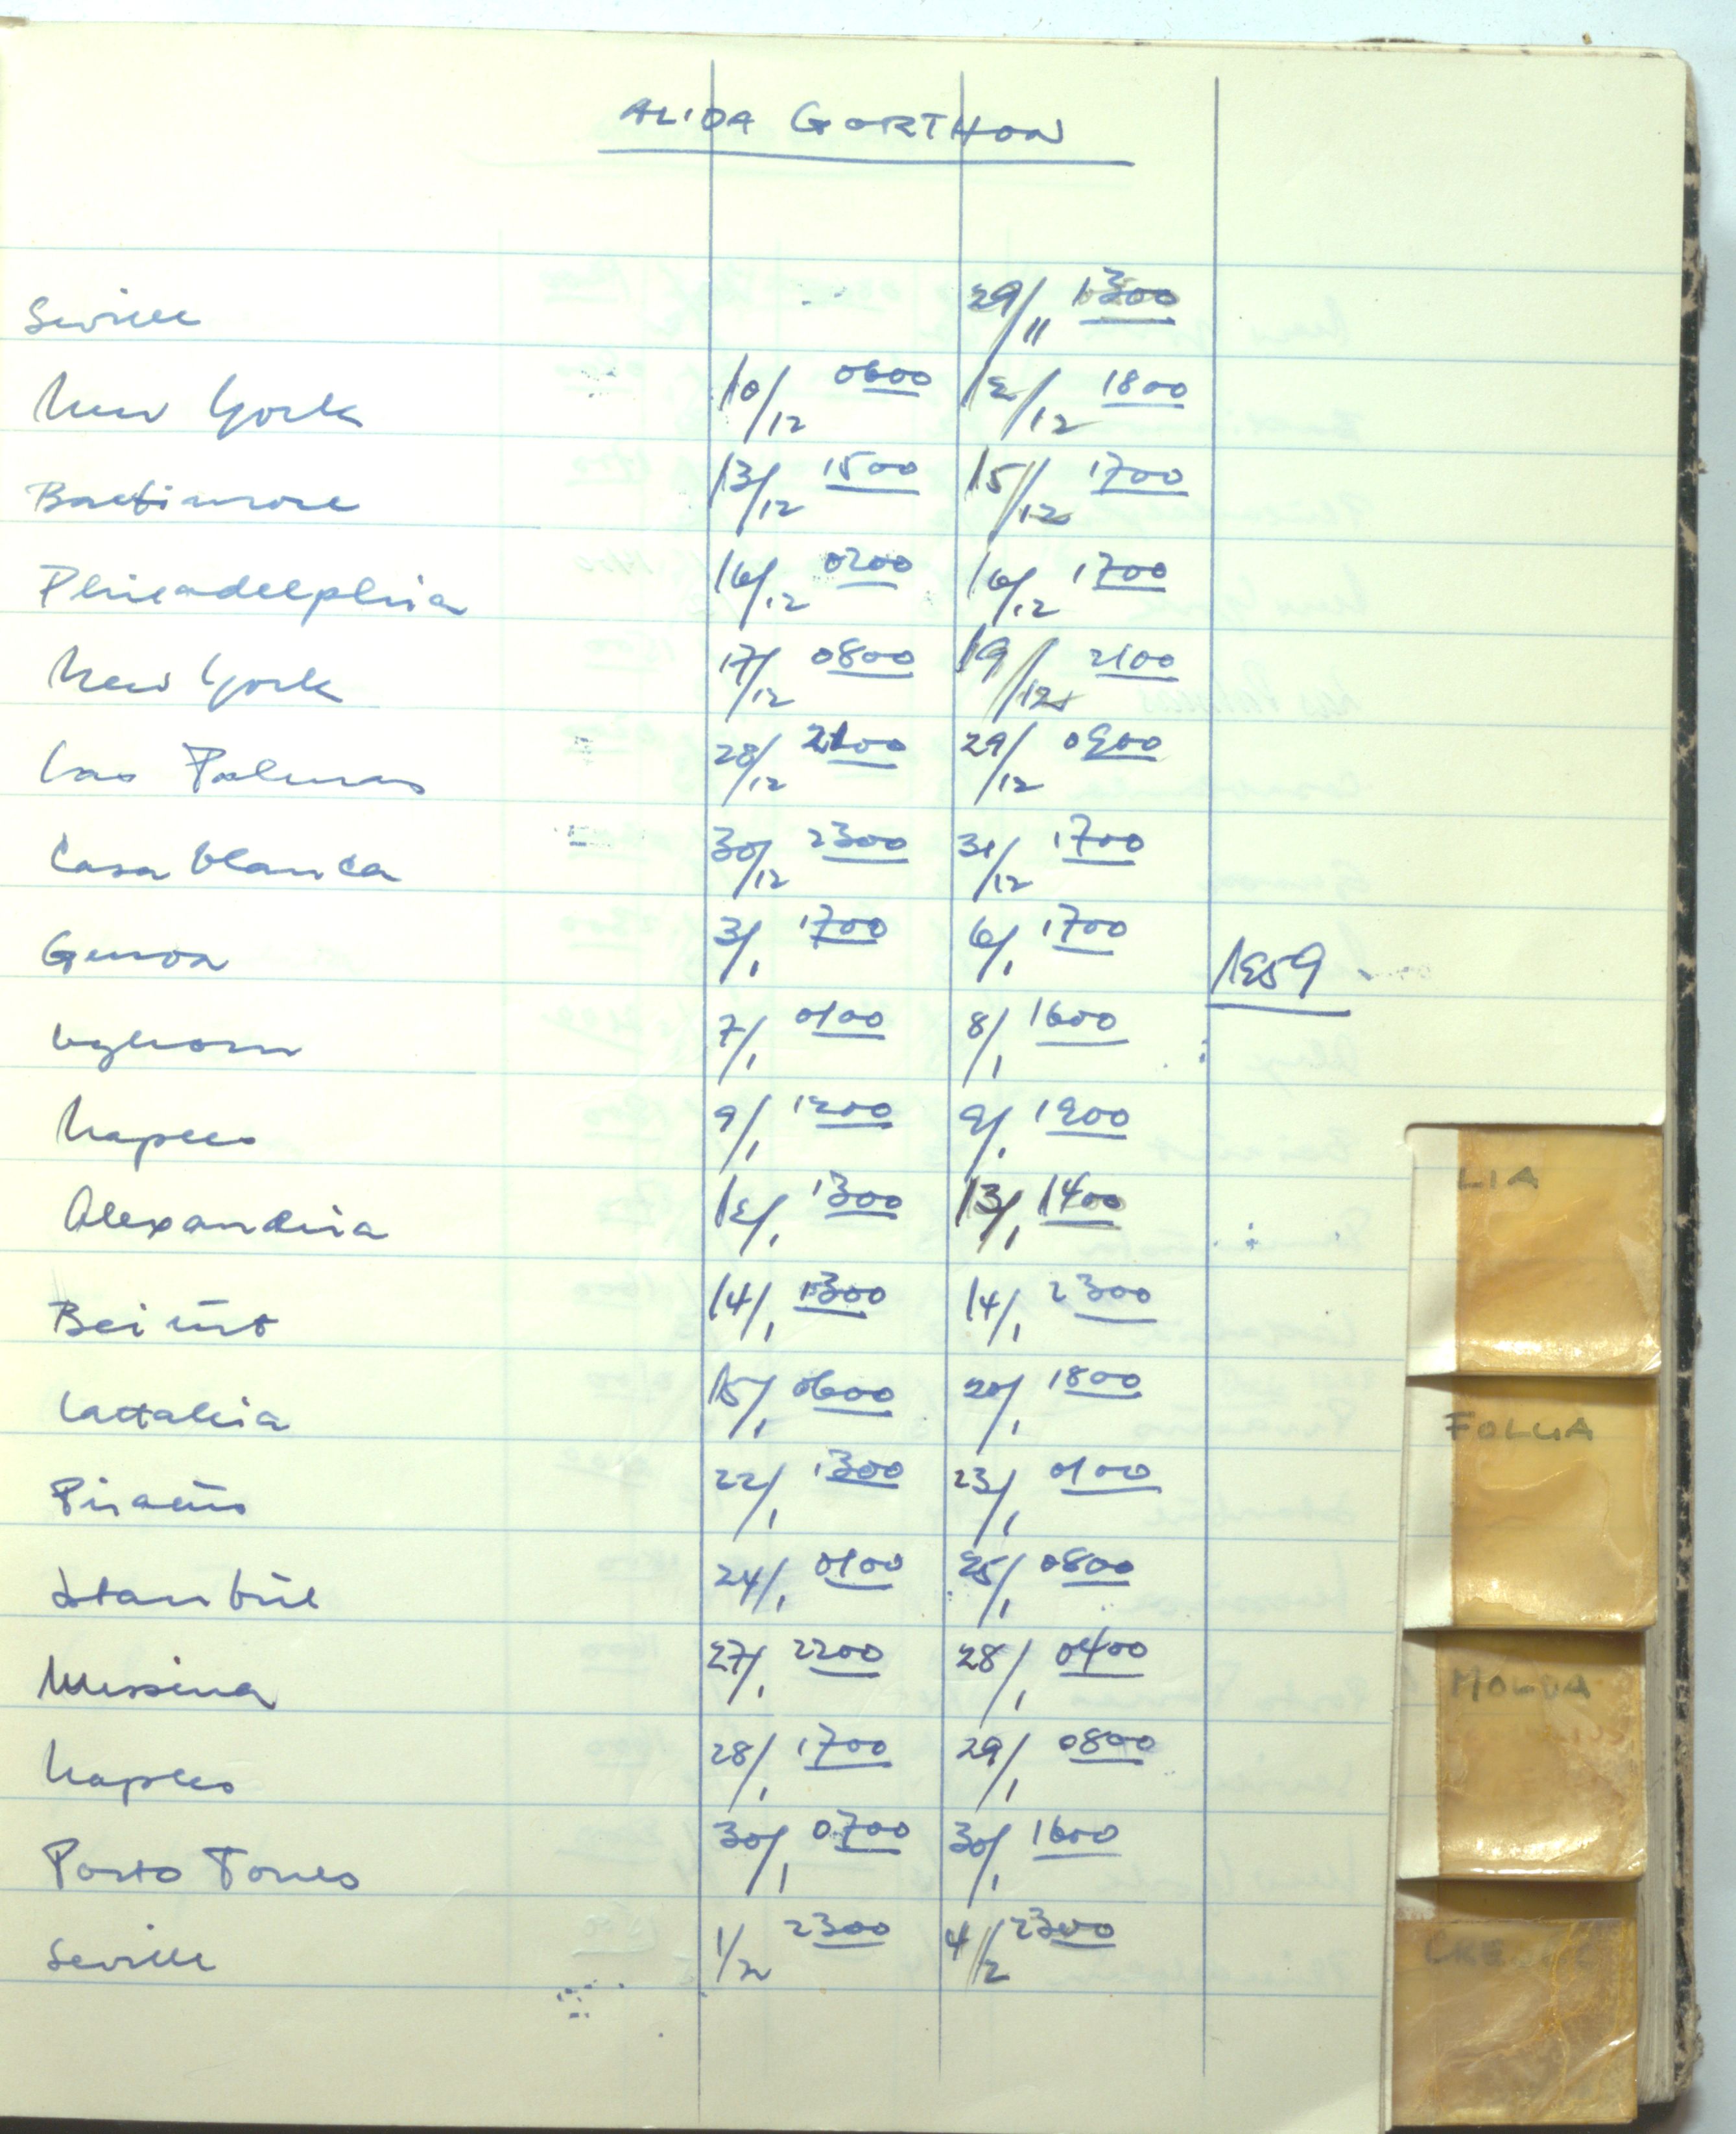 ALIDA GORTHON
Seville 29/11 1300
New York 10/12 0600 12/12 1800
Baltimore 13/12 1500 15/12 1700
Philadelphia 16/12 0200 16/12 1700
New York 17/12 0800 19/12 2100
Las Palmas 28/12 2100 29/12 0900
Casablanca 30/12 2300 31/12 1700
Genoa 3/1 1700 6/1 1700
1959
Leghorn 7/1 0100 8/1 1600
Naples 9/1 1200 9/1 1900
Alexandria 12/1 1300 13/1 1400
Beirut 14/1 1300 14/1 2300
Lattakia 15/1 0600 20/1 1800
Piraeus 22/1 1300 23/1 0100
Istanbul 24/1 0100 25/1 0800
Messina 27/1 2200 28/1 0400
Naples 28/1 1700 29/1 0800
Porto Torres 30/1 0700 30/1 1600
Seville 1/2 2300 4/2 2300
LIA
FOLGA